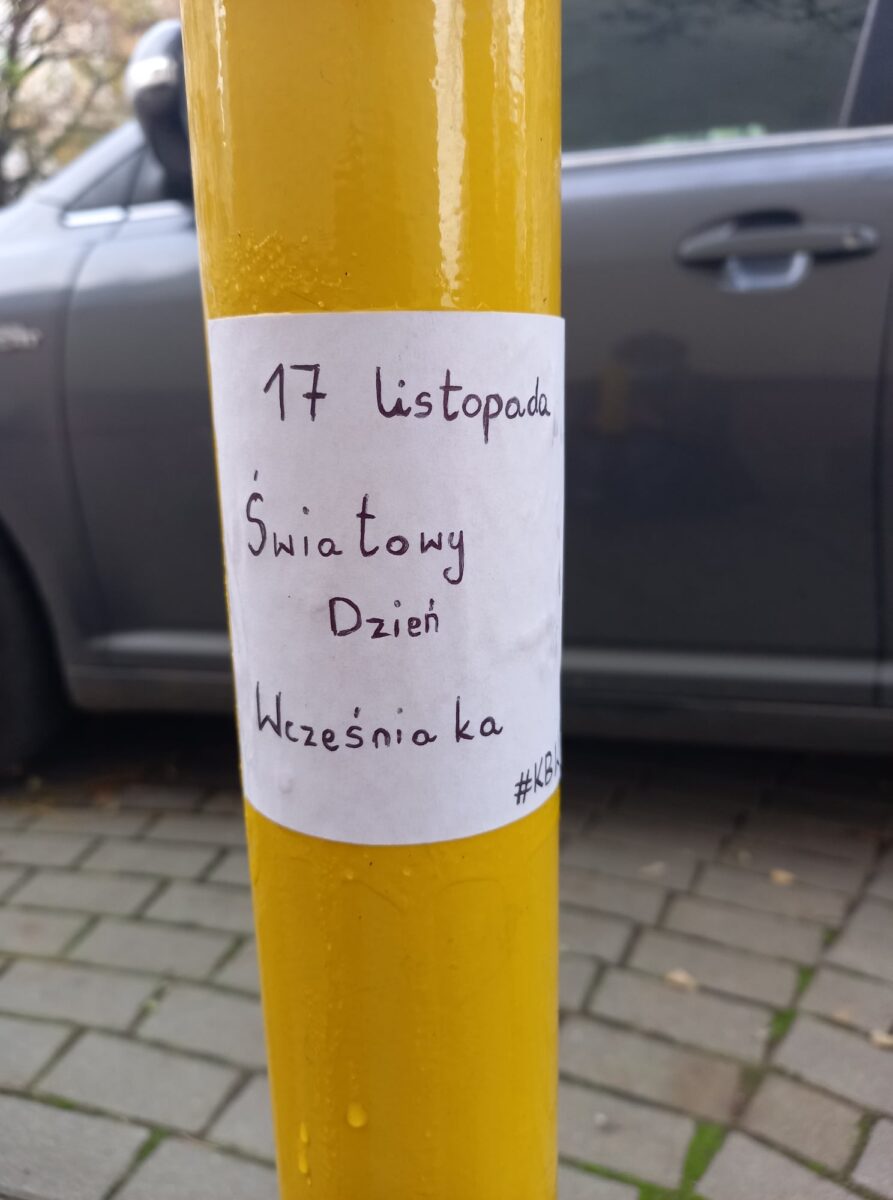 17 listopada
Światowy
Dzień
Wcześniaka